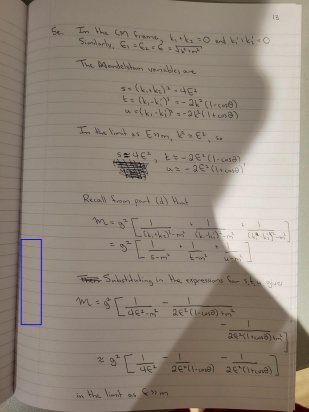 13
5e. In the CM frame, k₁+k₂ = 0 and k₁'+k₂' = 0
Similarly, E₁=E₂=E=√k²+m²
The Mandelstam variables are
s=(k₁+k₂)² = 4E²
t=(k₁-k₁')² = -2k²(1-cosθ)
u=(k₁-k₂')² = -2k²(1+cosθ)
In the limit as E≫m, k²≈E², so
s≈4E², t≈-2E²(1-cosθ)
u≈-2E²(1+cosθ)
Recall from part (d) that
M=g²[1/((k₁+k₂)²-m²) + 1/((k₁-k₁')²-m²) + 1/((k₁-k₂')²-m²)]
=g²[1/(s-m²) + 1/(t-m²) + 1/(u-m²)]
Substituting in the expressions for s,t,u gives
M=g²[1/(4E²-m²) - 1/(2E²(1-cosθ)+m²)
- 1/(2E²(1+cosθ)+m²)]
≈g²[1/4E² - 1/(2E²(1-cosθ)) - 1/(2E²(1+cosθ))]
in the limit as E≫m